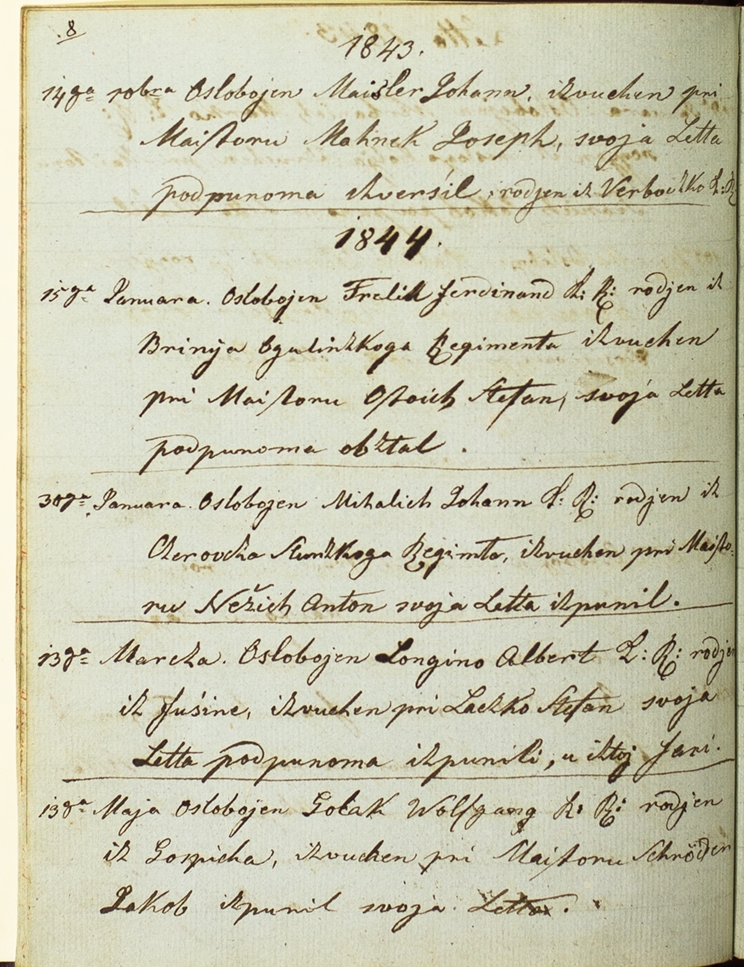 8
1843.
14ga 10bra Oslobojen Maisler Johann, izvuchen pri
Maistoru Mahnek Joseph, svoja Letta
podpunoma izveršil, rodjen iz Verbovzko L: R:
1844.
15ga Januara. Oslobojen Frelik Ferdinand L: R: rodjen iz
Brinja Ogulinzkoga Regimenta izvuchen
pri Maistoru Ostoich Stefan, svoja Letta
podpunoma obztal.
30ga Januara. Oslobojen Mihalich Johann L: R: rodjen iz
Regimta, izvuchen pri Maisto-
ru Nežich Anton svoja Letta izpunil.
13ga Marcza. Oslobojen Longino Albert L: R: rodjen
iz Fušine, izvuchen pri Laczko Stefan svoja
Letta podpunoma izpunili, u iztoj Fari.
13ga Maja Oslobojen Golak Wolfgang L: R: rodjen
iz Gospicha, izvuchen pri Maistoru Schröder
Jakob izpunil svoja Letta.